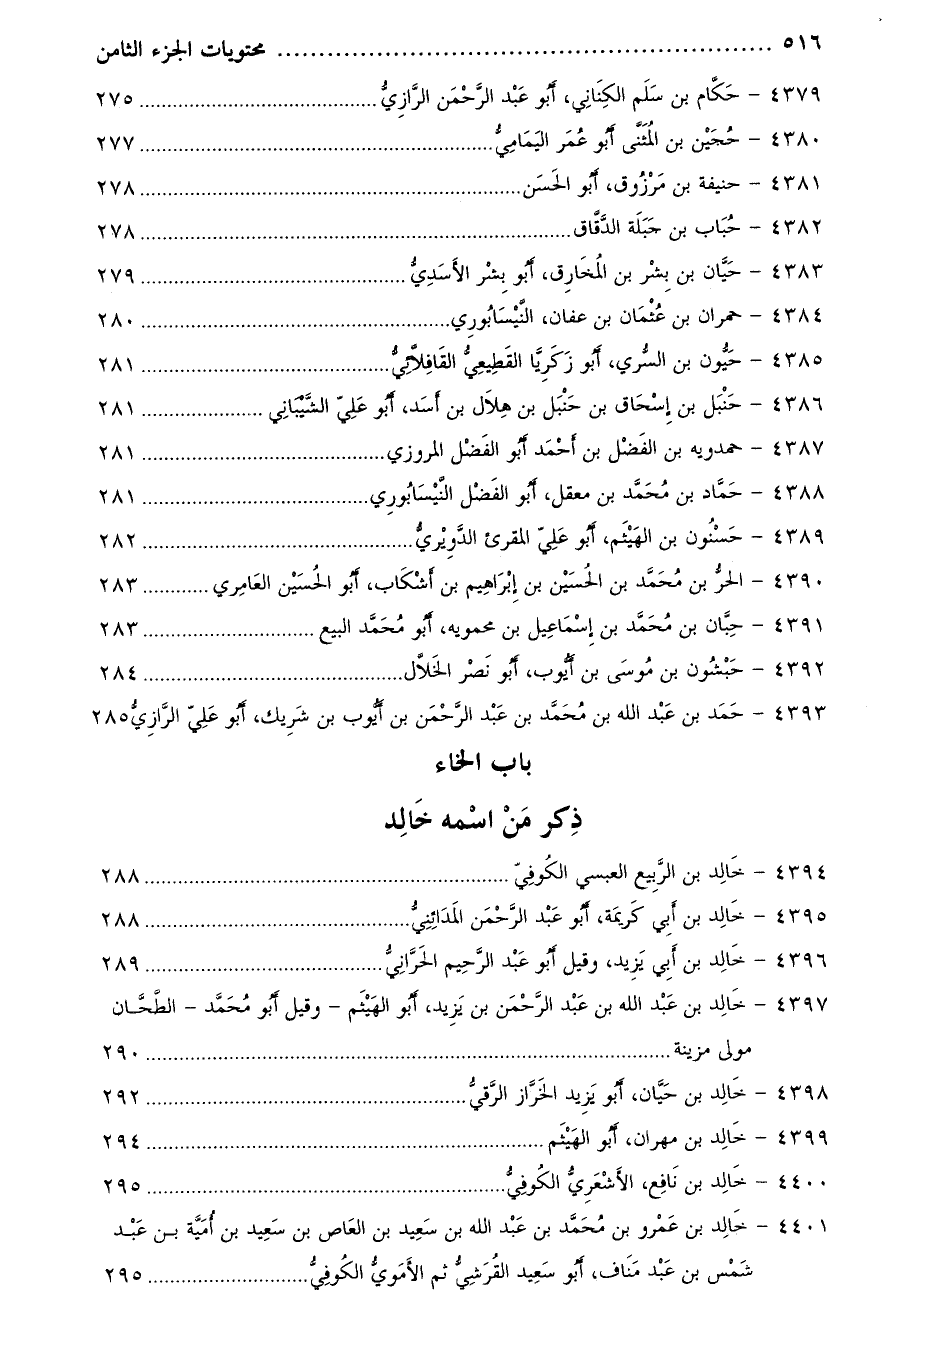 ٥١٦ ................ محتويات الجزء الثامن
٤٣٧٩ - حَكَّام بن سَلَم الكِنَاني، أَبُو عَبْد الرَّحْمَن الرَّازِيُّ ................ ٢٧٥
٤٣٨٠ - حُجَيْن بن المُثَنَّى أَبُو عُمَر اليَمَامِيُّ ................ ٢٧٧
٤٣٨١ - حنيفة بن مَرْزُوق، أَبُو الحَسَن ................ ٢٧٨
٤٣٨٢ - حُبَاب بن جَبَلَة الدَّقَّاق ................ ٢٧٨
٤٣٨٣ - حَيَّان بن بِشْر بن المُخَارِق، أَبُو بِشْر الأَسَدِيُّ ................ ٢٧٩
٤٣٨٤ - حمران بن عُثْمَان بن عفان، النَّيْسَابُوري ................ ٢٨٠
٤٣٨٥ - حَيُّون بن السُّري، أَبُو زَكَرِيَّا القَطِيعِيُّ القَافِلَّائِيُّ ................ ٢٨١
٤٣٨٦ - حَنْبَل بن إِسْحَاق بن حَنْبَل بن هِلَال بن أَسَد، أَبُو عَلِيّ الشَّيْبَانِي ................ ٢٨١
٤٣٨٧ - حمدويه بن الفَضْل بن أَحْمَد أَبُو الفَضْل المروزي ................ ٢٨١
٤٣٨٨ - حَمَّاد بن مُحَمَّد بن معقل، أَبُو الفَضْل النَّيْسَابُوري ................ ٢٨١
٤٣٨٩ - حَسْنُون بن الهَيْثَم، أَبُو عَلِيّ المقرئ الدَّوِيْرِيُّ ................ ٢٨٢
٤٣٩٠ - الحرُّ بن مُحَمَّد بن الحُسَيْن بن إِبْرَاهِيم بن أَشْكَاب، أَبُو الحُسَيْن العَامِري ................ ٢٨٣
٤٣٩١ - حِبَّان بن مُحَمَّد بن إِسْمَاعِيل بن محمويه، أَبُو مُحَمَّد البيع ................ ٢٨٣
٤٣٩٢ - حَبْشُون بن مُوسَى بن أَيُّوب، أَبُو نَصْر الخَلَّال ................ ٢٨٤
٤٣٩٣ - حَمَد بن عَبْد الله بن مُحَمَّد بن عَبْد الرَّحْمَن بن أَيُّوب بن شَرِيك، أَبُو عَلِيّ الرَّازِيُّ ٢٨٥
باب الخاء
ذِكر مَنْ اسْمه خَالِد
٤٣٩٤ - خَالِد بن الرَّبِيع العبسي الكُوفِيّ ................ ٢٨٨
٤٣٩٥ - خَالِد بن أَبي كَرِيمَة، أَبُو عَبْد الرَّحْمَن المَدَائِنِيُّ ................ ٢٨٨
٤٣٩٦ - خَالِد بن أَبي يَزِيد، وقيل أَبُو عَبْد الرَّحِيم الحَرَّانِيُّ ................ ٢٨٩
٤٣٩٧ - خَالِد بن عَبْد الله بن عَبْد الرَّحْمَن بن يَزِيد، أَبُو الهَيْثَم - وقيل أَبُو مُحَمَّد - الطَّحَّان
مولى مزينة ................ ٢٩٠
٤٣٩٨ - خَالِد بن حَيَّان، أَبُو يَزِيد الخَرَّاز الرَّقِيُّ ................ ٢٩٢
٤٣٩٩ - خَالِد بن مهران، أَبُو الهَيْثَم ................ ٢٩٤
٤٤٠٠ - خَالِد بن نَافِع، الأَشْعَرِيُّ الكُوفِيُّ ................ ٢٩٥
٤٤٠١ - خَالِد بن عَمْرو بن مُحَمَّد بن عَبْد الله بن سَعِيد بن العَاص بن سَعِيد بن أُمَيَّة بن عَبْد
شَمْس بن عَبْد مَنَاف، أَبُو سَعِيد القُرَشِيُّ ثم الأَمَوِيُّ الكُوفِيُّ ................ ٢٩٥